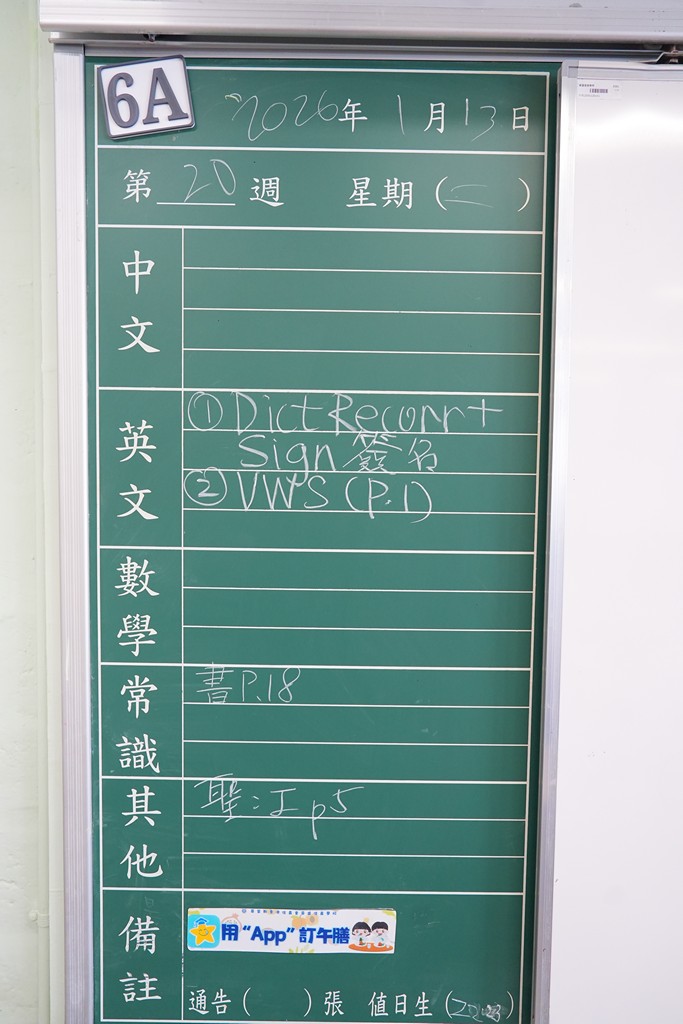 6A
2026年 1月13日
第 20 週 星期(二)
中文
英文
① Dict Recorr +
Sign 簽名
② VWS (P.1)
數學
常識
書P.18
其他
聖:工 p5
備註
用“App”訂午膳
通告( )張 值日生( )